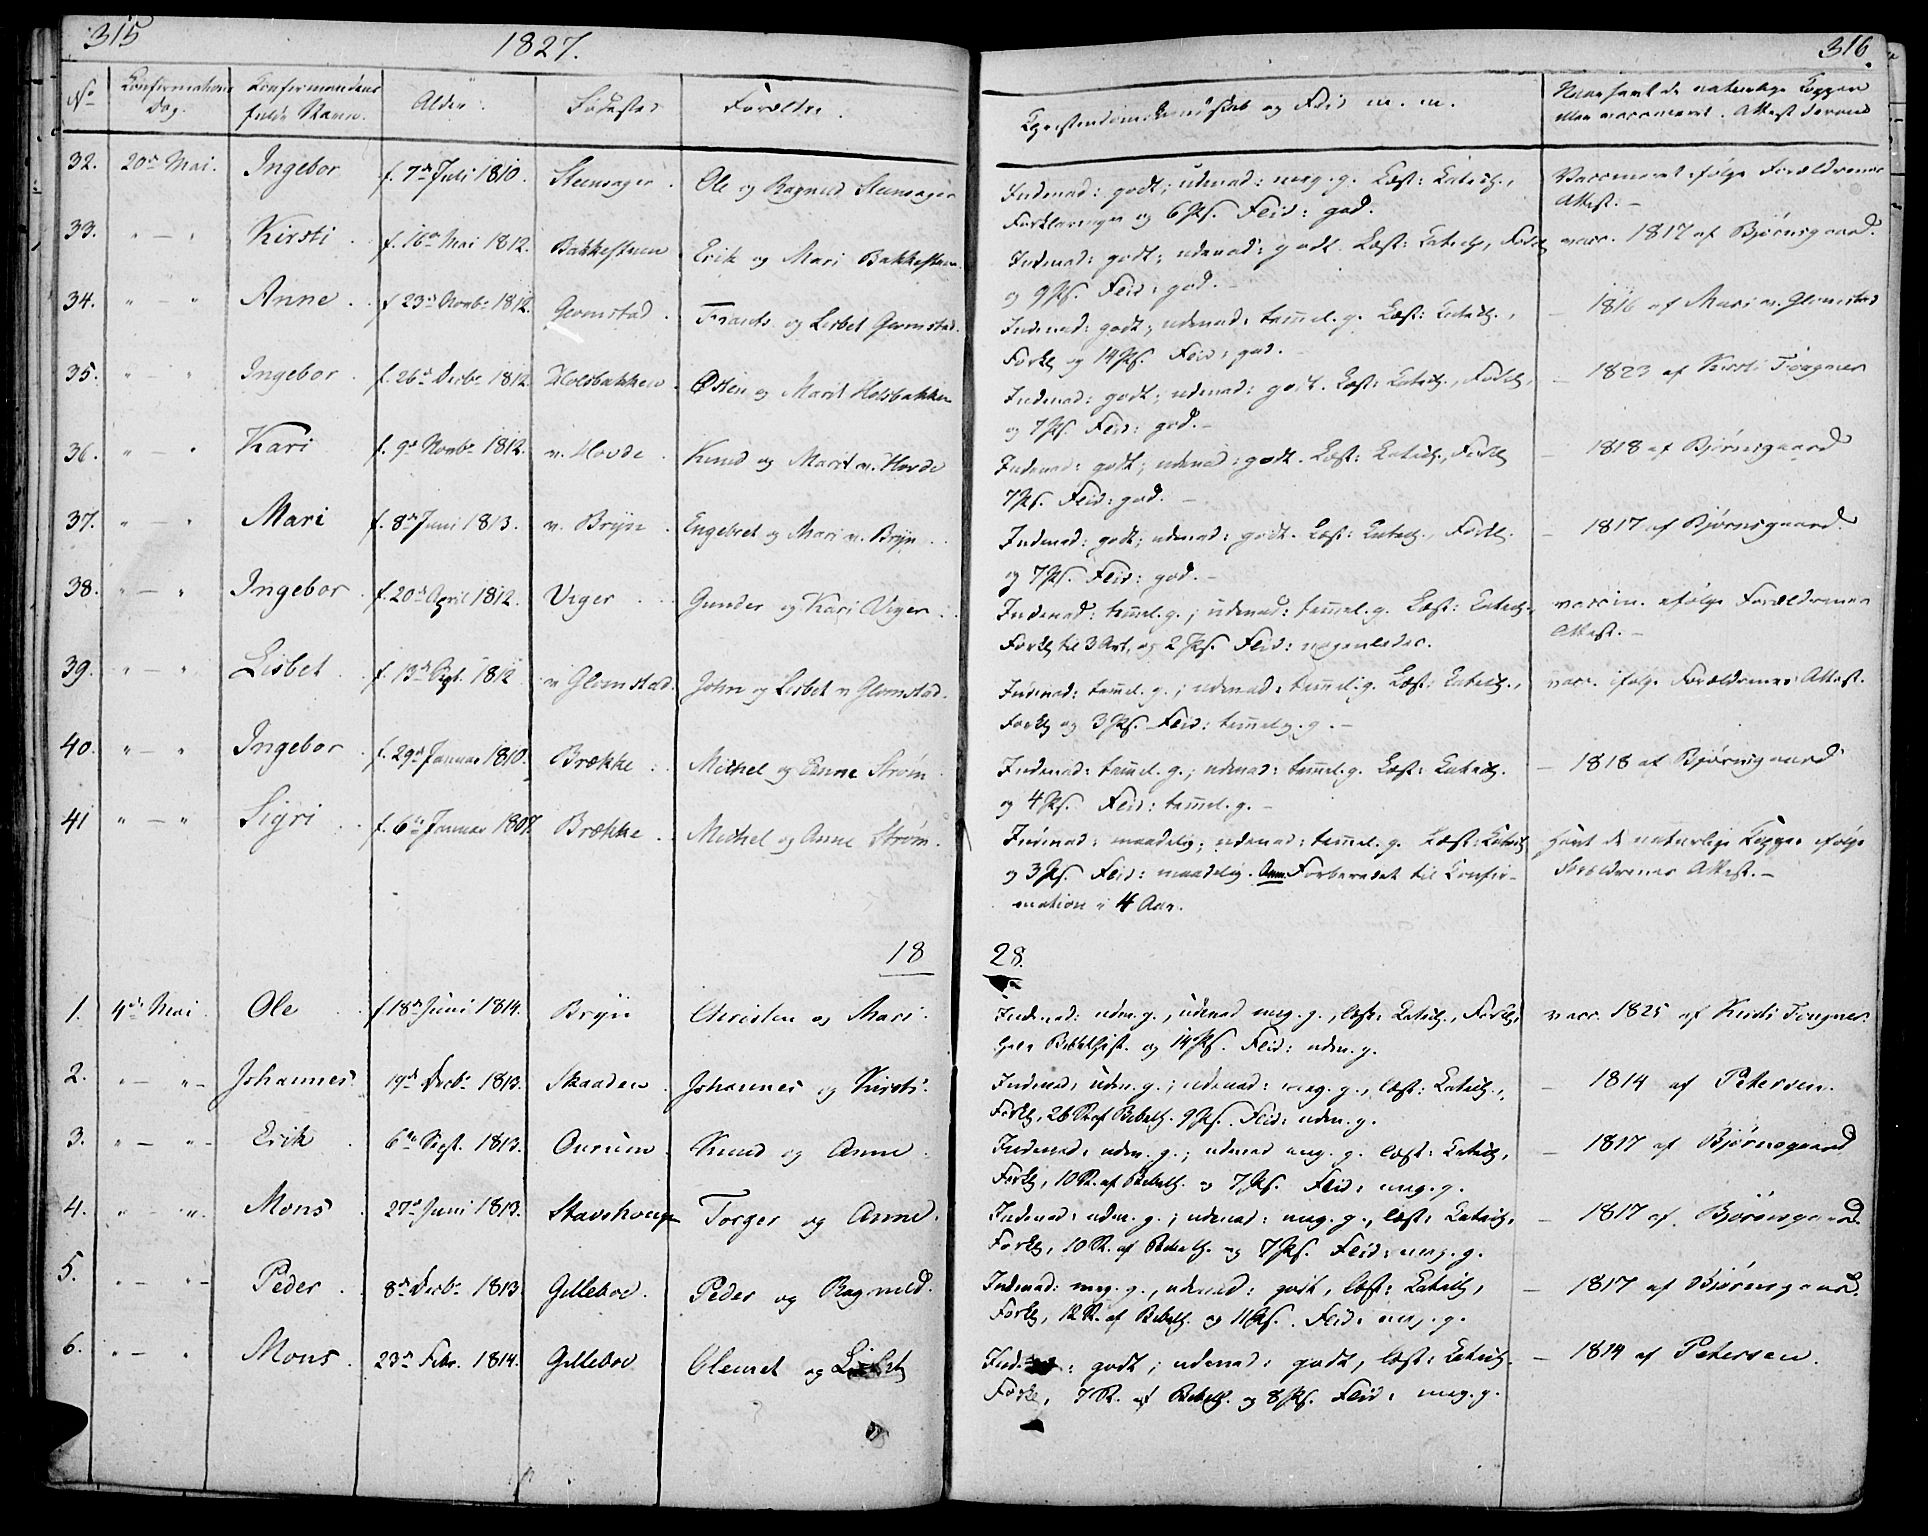 315
1827.
316.
No
Confirmations
Dag.
Confirmandens
fulde Navn.
Alder.
Fødested
Forældre.
Christendomskundskab og Flid m. m.
Naar havt de naturlige Kopper
eller vaccineret. Attest derom
32. 20de Mai. Ingebor f. 7de Juli 1810. Steensager. Ole og Ragnild Steensager
Indenad: godt; udenad: meg. g. Læst: Catech.,
Forklaringen og 6 Ps. Flid: god.
Vaccineret ifølge Forældrenes
Attest. –
33. " – " Kirsti. f. 16de Mai 1812. Bakkestuen Erik og Mari Bakkestuen.
Indenad: godt; udenad: godt. Læst: Catech., Forkl
og 9 Ps. Flid: god. –
vacc. 1817 af Bjørnsgaard.
34. " – " Anne. f 23de Novbr 1812. Glomstad. Frants og Lisbet Glomstad.
Indenad: godt; udenad: tammel. g. Læst: Catech.,
Forkl og 14 Ps. Flid: god. –
– 1816 af Mari n. Glomstad
35. " – " Ingebor. f. 26de Decbr 1812 Holsbakken. Østen og Marit Holsbakken
Indenad: godt; udenad: godt. Læst: Catech., Forkl,
og 7 Ps. Flid: god. –
– 1823 af Kirsti Fougner
36. " – " Kari f. 9de Novbr 1812. n. Hovde. Knud og Marit n. Hovde
Indenad: godt; udenad: godt. Læst: Catech., Forkl
7 Ps. Flid: god. –
– 1818 af Bjørnsgaard
37. " – " Mari f. 8de Juni 1813. n. Bryn. Engebret og Mari n. Bryn.
Indenad: godt; udenad: godt. Læst: Catech., Forkl.
og 7 Ps. Flid: god. –
– 1817 af Bjørnsgaard
38. " – " Ingebor. f. 20de April 1812. Viger Gunder og Kari Viger.
Indenad: tammel. g.; udenad: tammel. g. Læst: Catech.,
Forkl til 3 Art. og 2 Ps. Flid: nogenledes.
vaccin. ifølge Forældrenes
Attest. –
39. " – " Lisbet. f. 13de Sept. 1812 n Glomstad. John og Lisbet n Glomstad.
Indenad: tammel. g.; udenad: tammel. g. Læst: Catech.,
Forkl og 3 Ps. Flid: tammelig. g. –
vacc. ifølge Forældrenes Attest.
40. " – " Ingebor. f. 29de Januar 1810. Brække. Michel og Anne Strøm.
Indenad: tammel. g.; udenad: tammel. g. Læst: Catech.
og 4 Ps. Flid: tammel. g. –
– 1818 af Bjørnsgaard
41 " – " Sigri. f. 6te Januar 1807. Brække. Michel og Anne Strøm.
Indenad: maadelig; udenad: tammel. g. Læst: Catech
og 3 Ps. Flid: maadelig. Anm. Forberedet til Confir-
mation i 4 Aar.
Havt de naturlige Kopper ifølge
Forældrenes Attest. –
18
28.
1. 4de Mai. Ole f 18de Juni 1814. Bryn Christen og Mari.
Indenad: udm. g., udenad meg. g., læst: Catech., Forkl,
hele Bibelhist. og 14 Ps. Flid: udm. g.
vacc. 1825 af Kirsti Fougner.
2. " – " – Johannes. 19de Decbr 1813. Skaaden. Johannes og Kirsti.
Indenad: udm. g.; udenad: meg. g., læst: Catech.,
Forkl, 26 St. af Bibelh. 9 Ps. Flid: udm. g.
– 1814 af Petersen.
3. " – " – Erik 6te Sept. 1813. Onsum. Knud og Anne.
Indenad: udm. g.; udenad meg. g. læst: Catech,
Forkl, 10 St. af Bibelh. og 7 Ps. Flid: meg. g.
– 1817 af Bjørnsgaard
4. " – " Mons. 27de Juni 1813. Stavehougen Torger og Anne.
Indenad: udm. g.; udenad: meg. g., læst: Catech,
Forkl, 10 St. af Bibelh. og 7 Ps. Flid: meg. g.
– 1817 af Bjørnsgaard.
5. " – " – Peder. 8de Decbr 1813. Gilleboe. Peder og Ragnild.
Indenad: meg. g., udenad: godt, læst: Catech,
Forkl, 12 St. af Bibelh. og 11 Ps. Flid: meg. g.
– 1817 af Bjørnsgaard.
6. " – " Mons. 23de Febr. 1814. Gilleboe Clemet og Lisbet
Indenad: godt; udenad: godt, læst: Catech.
Forkl, 7 St. af Bibelh. og 8 Ps. Flid: meg. g.
– 1814 af Petersen.